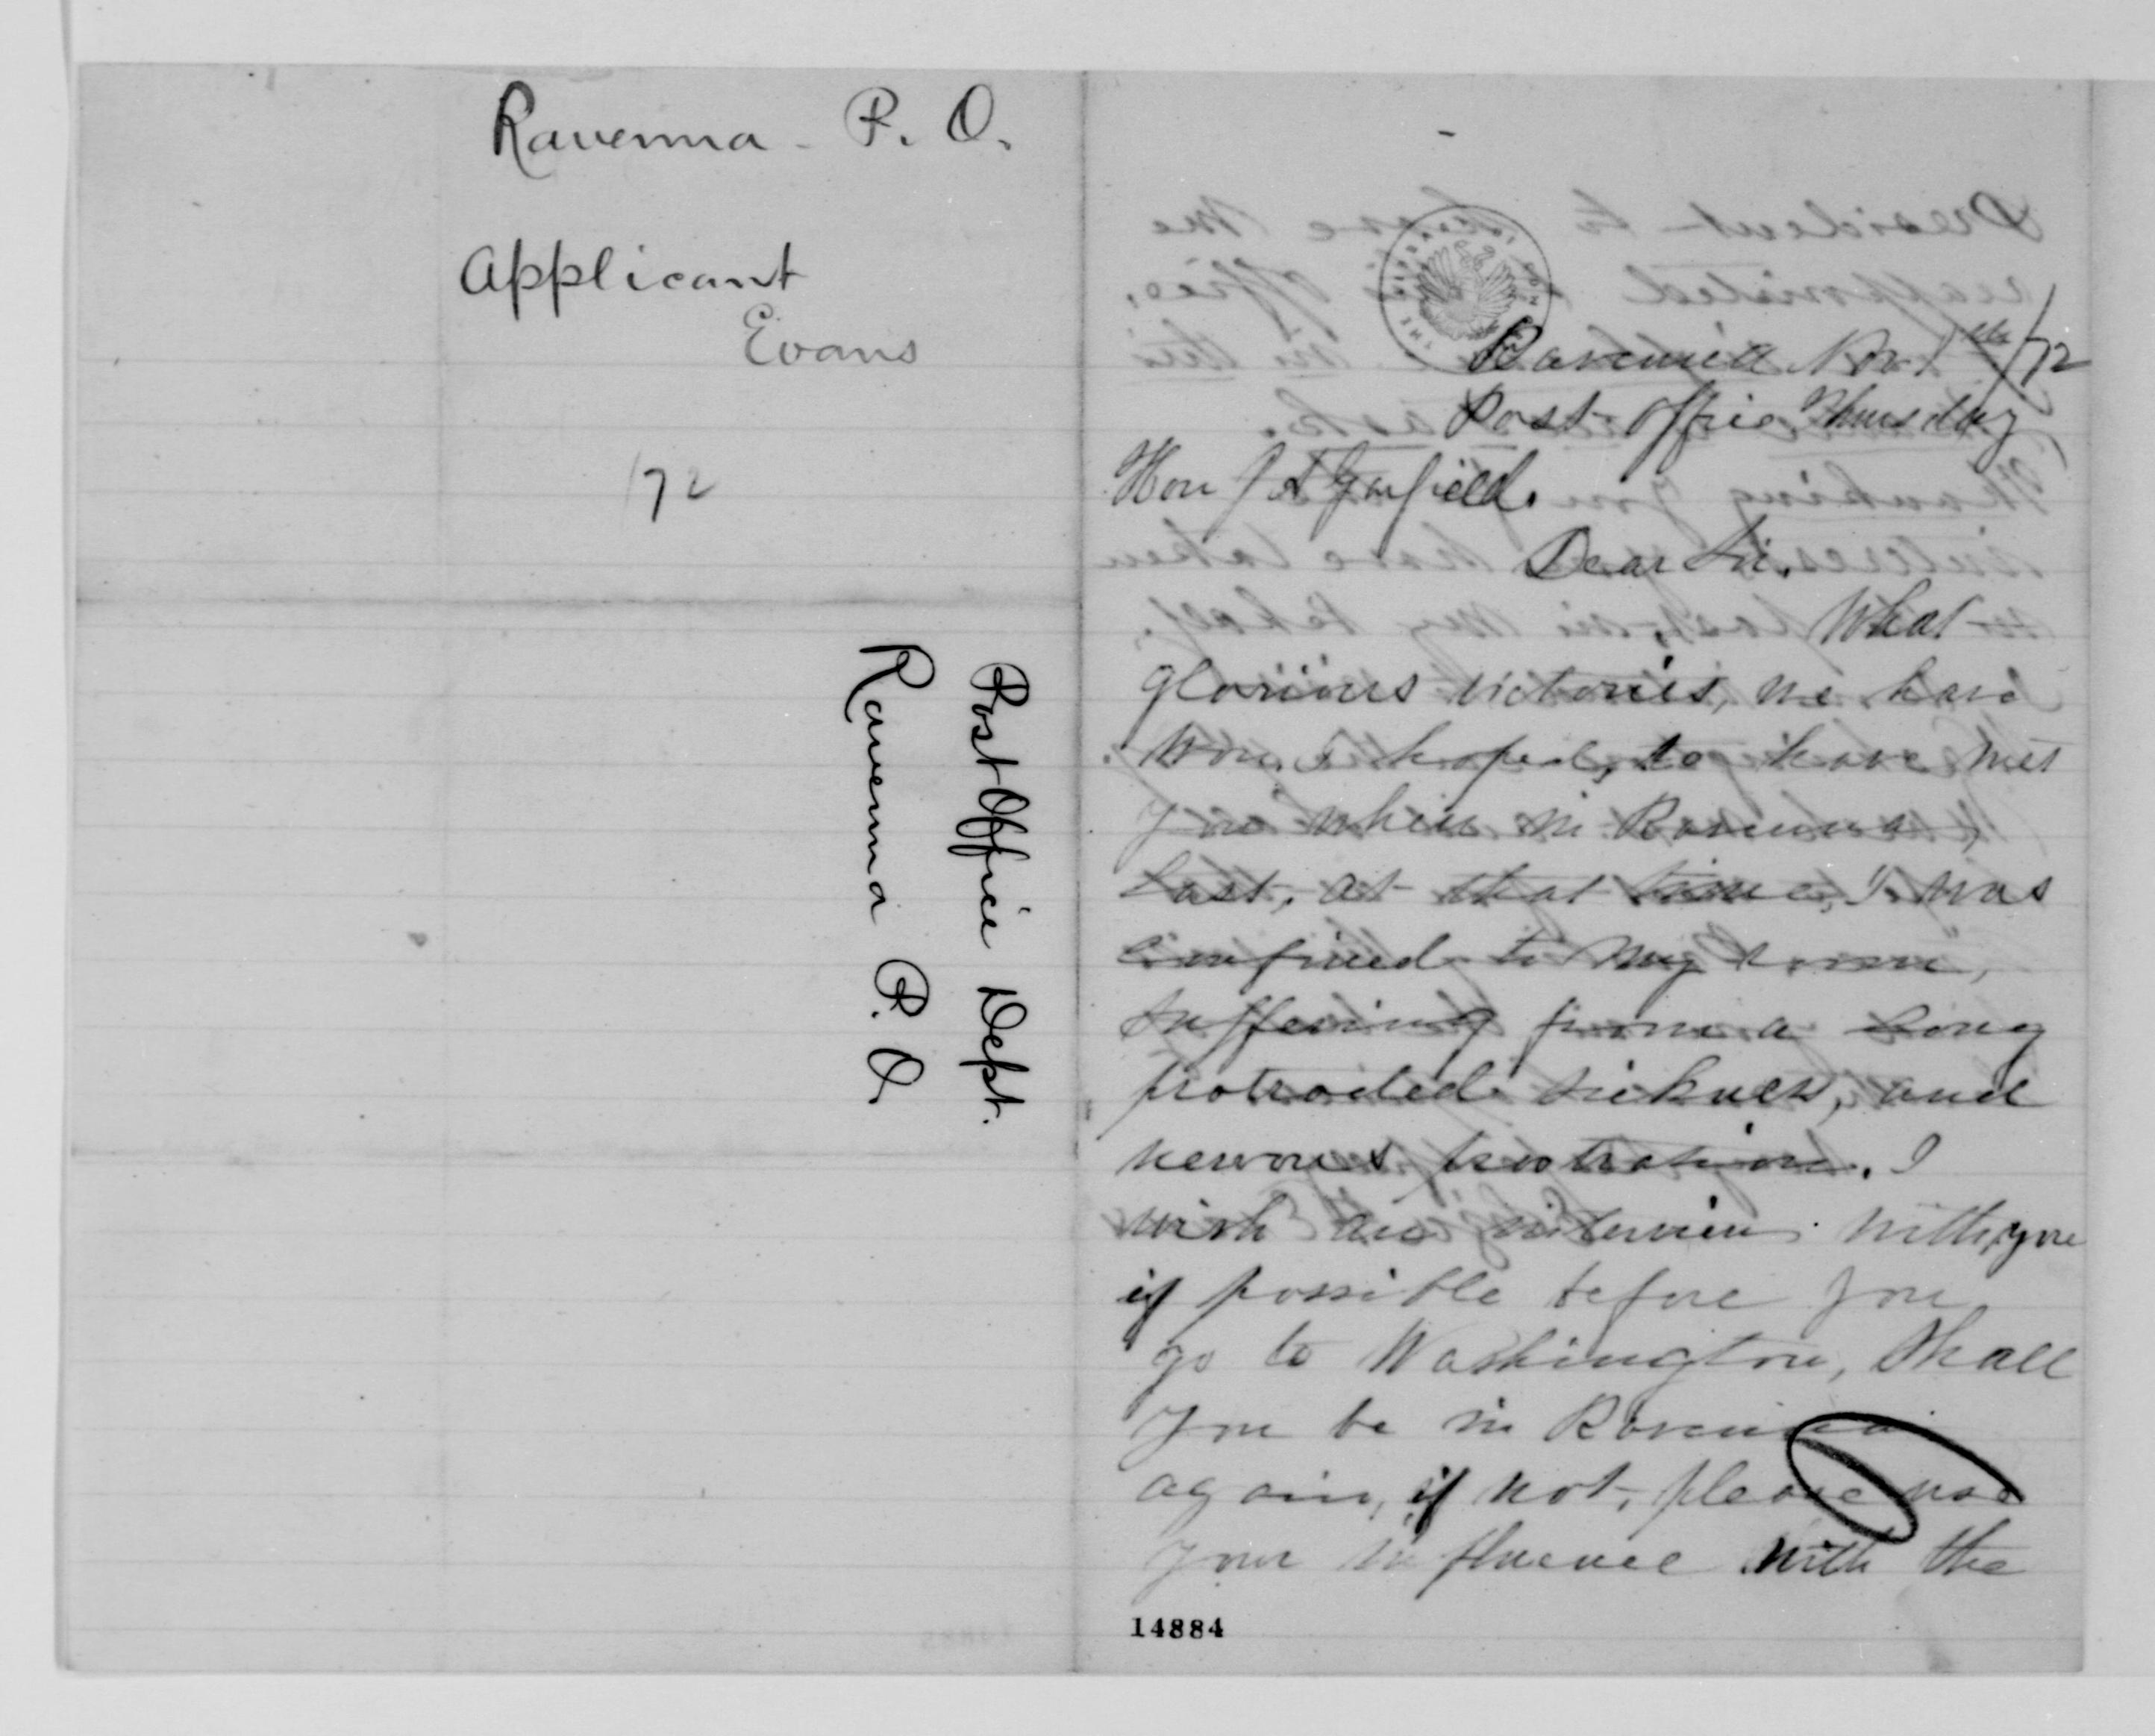 Ravenna - P. O.
Applicant
Evans
/72
Post Office Dept.
Ravenna P. O.
Ravenna Nov 7th/72
Post-Office Thursday
Hon J A Garfield.
Dear Sir.
What
glorious victories, we have
won. I hoped, to have met
you when in Ravenna,
last, at that time, I was
confined to my room,
suffering from a long
protracted sickness, and
nervous prostration. I
wish an interview with you
if possible before you
go to Washington, Shall
you be in Ravenna
again, if not, please use
your influence with the
14884